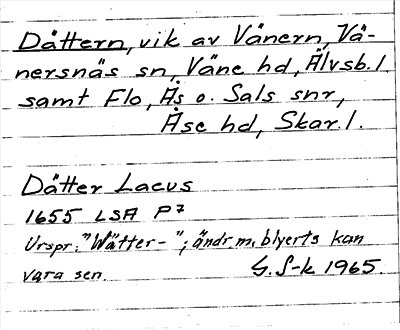 Dättern, vik av Vänern, Vä-
nersnäs sn, Väne hd, Älvsb. l.
samt Flo, Ås o. Sals snr,
Åse hd, Skar. l.
Dätter Lacus
1655 LSA P7
Urspr. "Wätter-"; ändr. m. blyerts kan
vara sen.
G. S-k 1965.